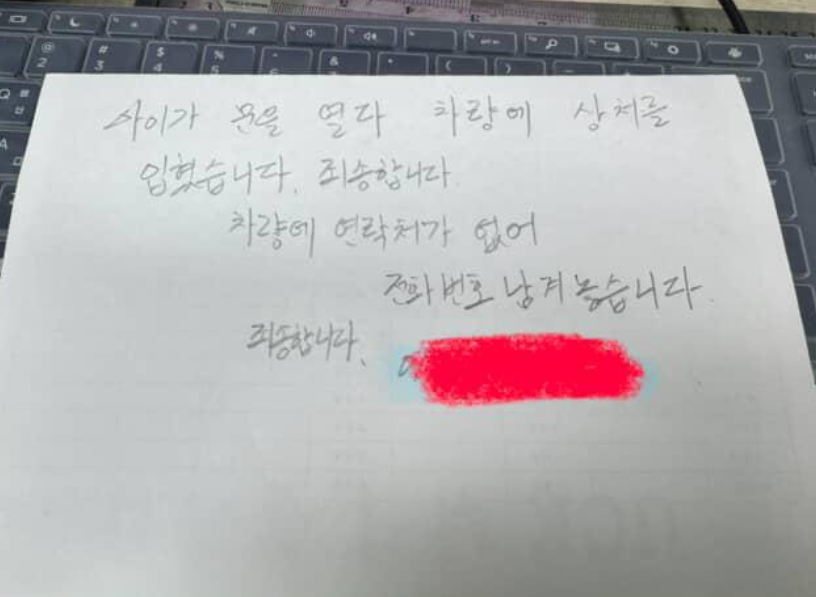 아이가 문을 열다 차량에 상처를
입혔습니다. 죄송합니다.
차량에 연락처가 없어
전화번호 남겨 놓습니다.
죄송합니다.